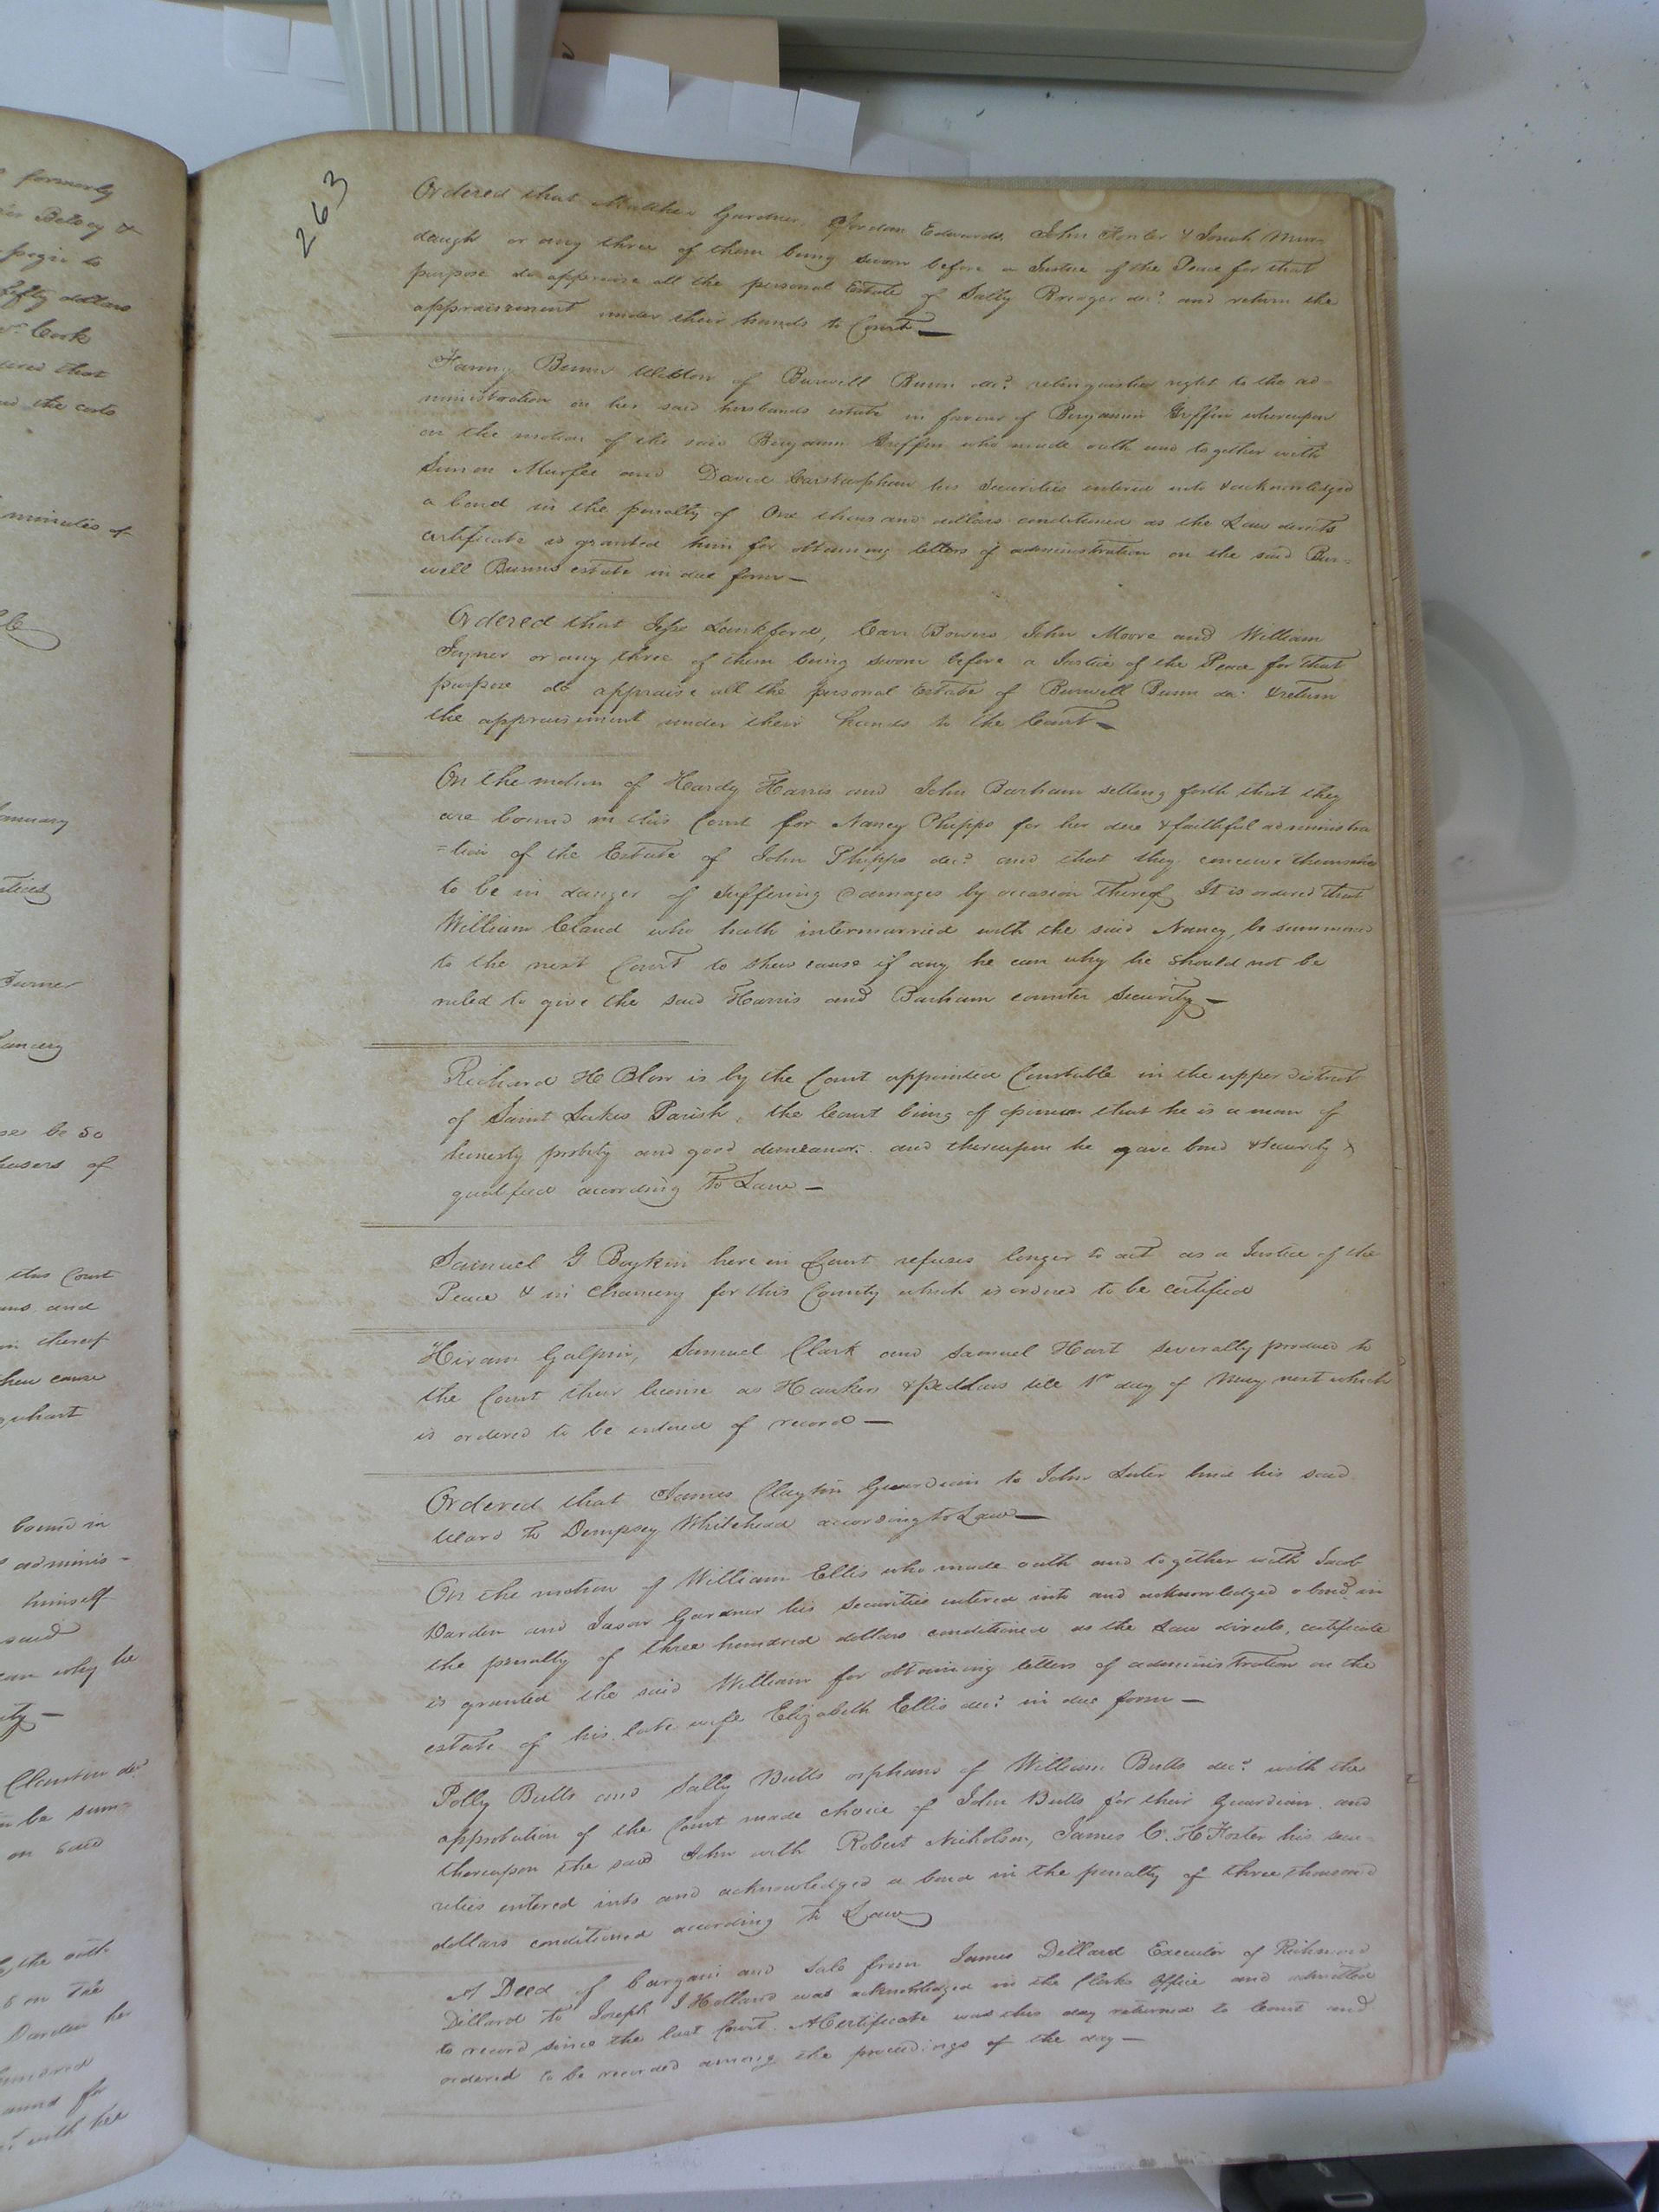 formerly
Belsey &
to
fifty dollars
Cook
that
the costs
minutes of
Turner
be so
of
this Court
and
thereof
shew cause
bound in
adminis-
himself
said
can why he
be sum=
on said
the oath
on the
Darden his
hundred
for
with her
263
Ordered that Matthew Gardner, Jordan Edwards, John Fowler & Jonah Mur-
daugh or any three of them being sworn before a Justice of the Peace for that
purpose do appraise all the personal Estate of Sally Kreager decd. and return the
appraisement under their hands to Court—
Fanny Bunn Widdow of Burwell Bunn decd. relinquished right to the ad-
ministration on her said husbands estate in favour of Benjamin Griffin whereupon
on the motion of the said Benjamin Griffin who made oath and together with
Simon Murfee and David Carstarphen his Securities entered into & acknowledged
a bond in the penalty of One thousand dollars conditioned as the Law directs
certificate is granted him for obtaining letters of administration on the said Bur=
well Bunns estate in due form—
Ordered that Jesse Lankford, Carr Bowers, John Moore and William
Joyner or any three of them being sworn before a Justice of the Peace for that
purpose do appraise all the personal Estate of Burwell Bunn decd. & return
the appraisement under their hands to the Court—
On the motion of Hardy Harris and John Barham setting forth that they
are bound in this Court for Nancy Phipps for her due & faithful administra
=tion of the Estate of John Phipps decd. and that they conceive themselves
to be in danger of suffering damages by occasion thereof. It is ordered that
William Claud who hath intermarried with the said Nancy, be summoned
to the next Court to shew cause if any he can why he should not be
ruled to give the said Harris and Barham counter Security—
Richard H Blow is by the Court appointed Constable in the upper district
of Saint Lukes Parish, the Court being of opinion that he is a man of
honesty probity and good demeanor. and thereupon he gave bond & Security &
qualified according to Law—
Samuel G Boykin here in Court refuses longer to act as a Justice of the
Peace & in Chancery for this County which is ordered to be certified
Hiram Galpin, Samuel Clark and Samuel Hart severally produced to
the Court their license as Hawkers & Pedlars till 1st day of May next which
is ordered to be entered of record—
Ordered that James Clayton Guardian to John Suter bind his said
Ward to Dempsey Whitehead according to Law—
On the motion of William Ellis who made oath and together with Jacob
Darden and Jason Gardner his Securities entered into and acknowledged a bond in
the penalty of three hundred dollars conditioned as the Law directs, certificate
is granted the said William for obtaining letters of administration on the
estate of his late wife Elizabeth Ellis decd. in due form—
Polly Butts and Sally Butts orphans of William Butts decd. with the
approbation of the Court made choice of John Butts for their Guardian. and
thereupon the said John with Robert Nicholson, James C. H Foster his secu=
rities entered into and acknowledged a bond in the penalty of three thousand
dollars conditioned according to Law
A Deed of bargain and sale from James Dillard Executor of Richmond
Dillard to Joseph J Holland was acknowledged in the Clerks office and admitted
to record since the last Court. A Certificate was this day returned to Court and
ordered to be recorded among the proceedings of the day—